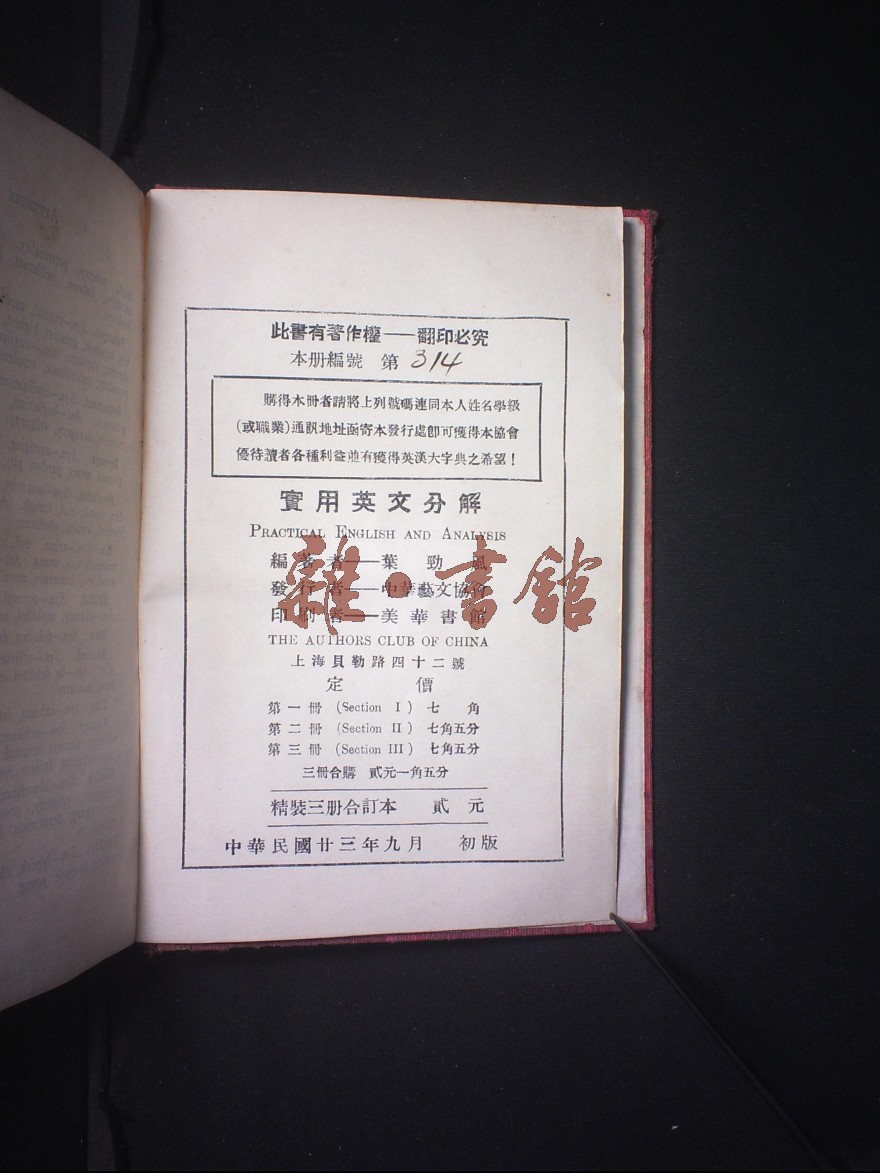 此書有著作權——翻印必究
本册編號 第 314
購得本冊者請將上列號碼連同本人姓名學級
(或職業)通訊地址函寄本發行處卽可獲得本協會
優待讀者各種利益並有獲得英漢大字典之希望!
實用英文分解
PRACTICAL ENGLISH AND ANALYSIS
編著者——葉勁風
發行者——中華藝文協會
印刷者——美華書館
雜·書館
THE AUTHORS CLUB OF CHINA
上海貝勒路四十二號
定 價
第一冊 (Section I) 七 角
第二冊 (Section II) 七角五分
第三冊 (Section III) 七角五分
三冊合購 貳元一角五分
精裝三册合訂本 貳 元
中華民國廿三年九月 初版